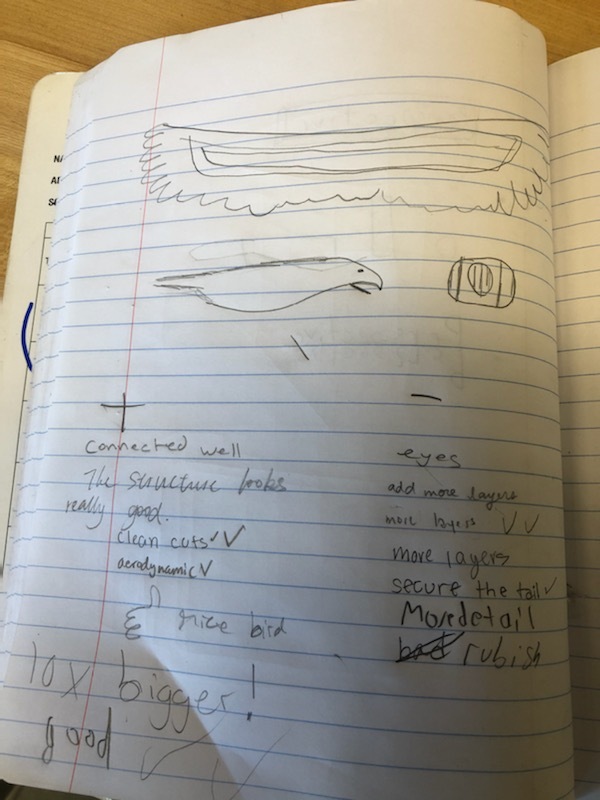 +
connected well
The structure looks
really good.
clean cuts ✓✓
aerodynamic ✓
nice bird
10x bigger!
good
-
eyes
add more layers
more layers ✓✓
more layers
secure the tail ✓
More detail
rubish